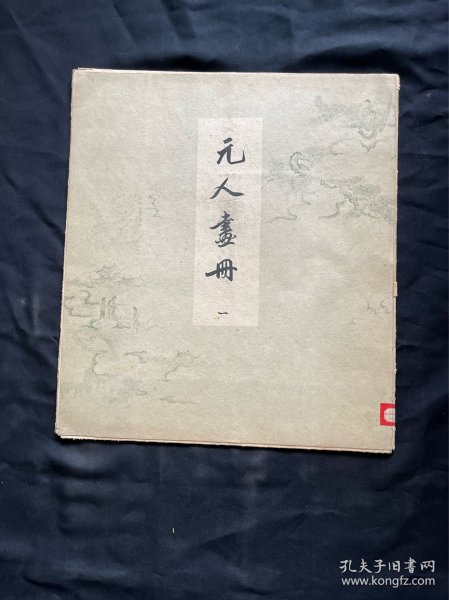 元人畫冊
一
孔夫子旧书网
www.kongfz.com